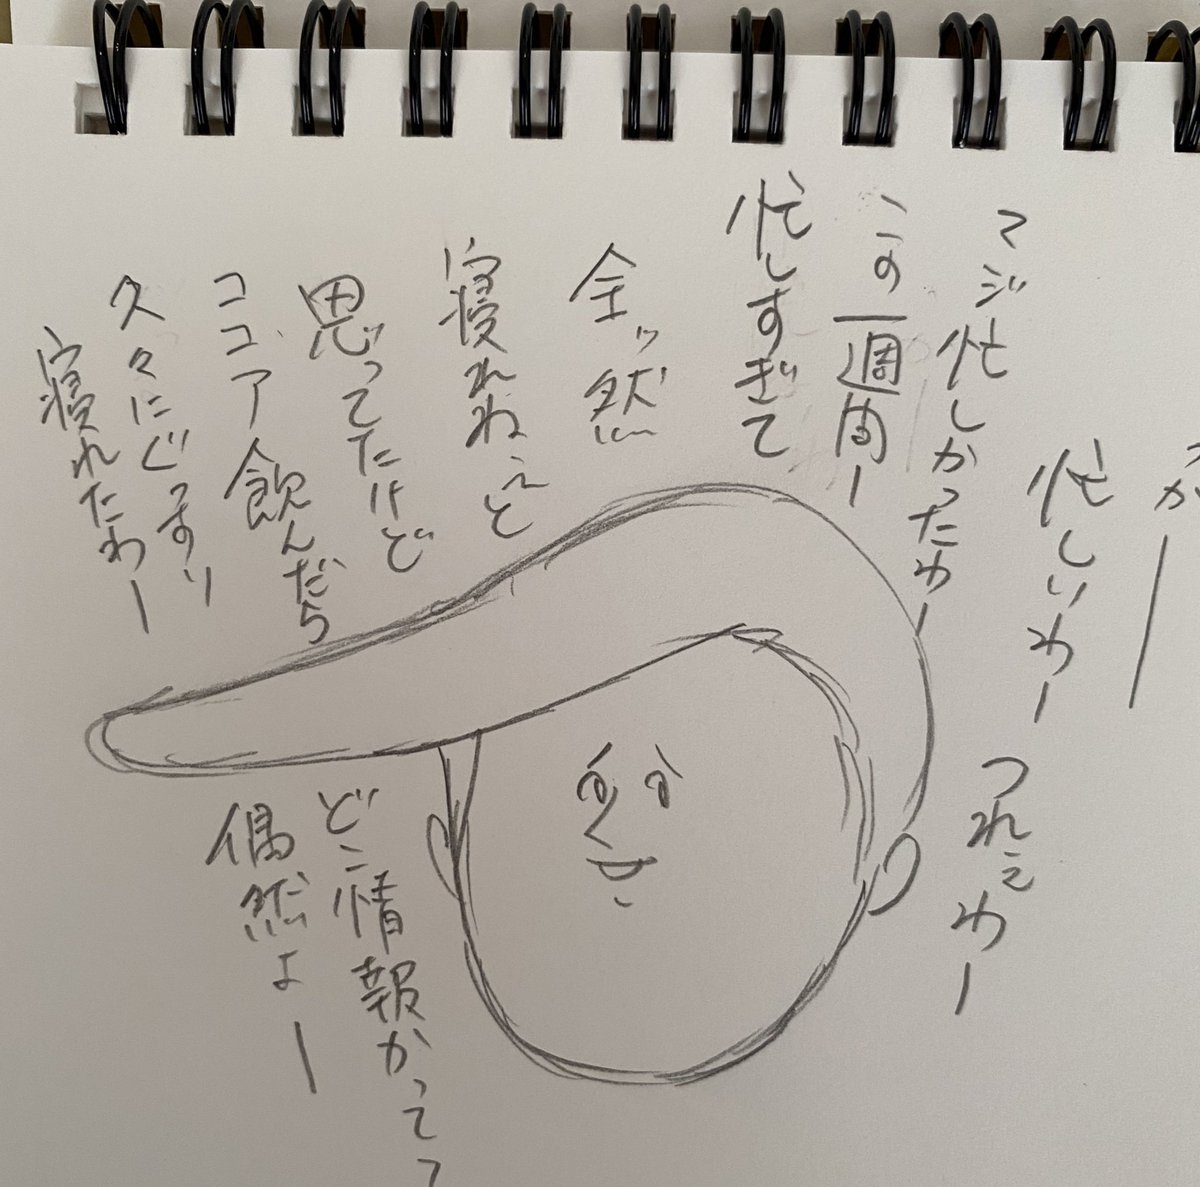 つかー
忙しいわー
つれえわー
マジ忙しかったわー
この一週間ー
忙しすぎて
全ッ然
寝れねぇと
思ってたけど
ココア飲んだら
久々にぐっすり
寝れたわー
どこ情報かって?
偶然よー